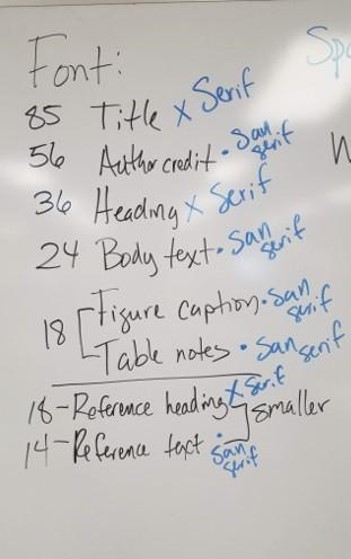 Font:
Spa
85 Title x Serif
56 Author credit • San serif
36 Heading x Serif
24 Body text • San serif
18 [Figure caption • San serif
Table notes • San serif
18 - Reference heading x Serif
14 - Reference text • San serif
] smaller